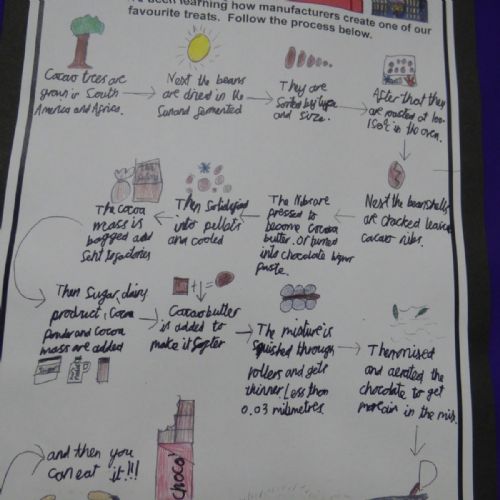 been learning how manufacturers create one of our
favourite treats. Follow the process below.
Cacao trees are
grown in South
America and Africa.
Next the beans
are dried in the
Sun and fermented
They are
Sorted by type
and size.
After that they
are roasted at 100-
150°c in the oven.
Next the beanshells
are cracked leave
cacao nibs.
The nibs are
pressed to
become cocoa
butter. Or turned
into chocolate liquor
paste.
Then Solidified
into pellets
and cooled
The cocoa
mass is
bagged and
sent to factories
Then Sugar, dairy
product, Cocoa
Powder and cocoa
mass are added
Cacao butter
is added to
make it softer
The mixture is
squished through
rollers and gets
thinner/Less than
0.03 milimetres
Then mixed
and aerated the
chocolate to get
more air in the mix.
and then you
can eat it!!!
CHOCO